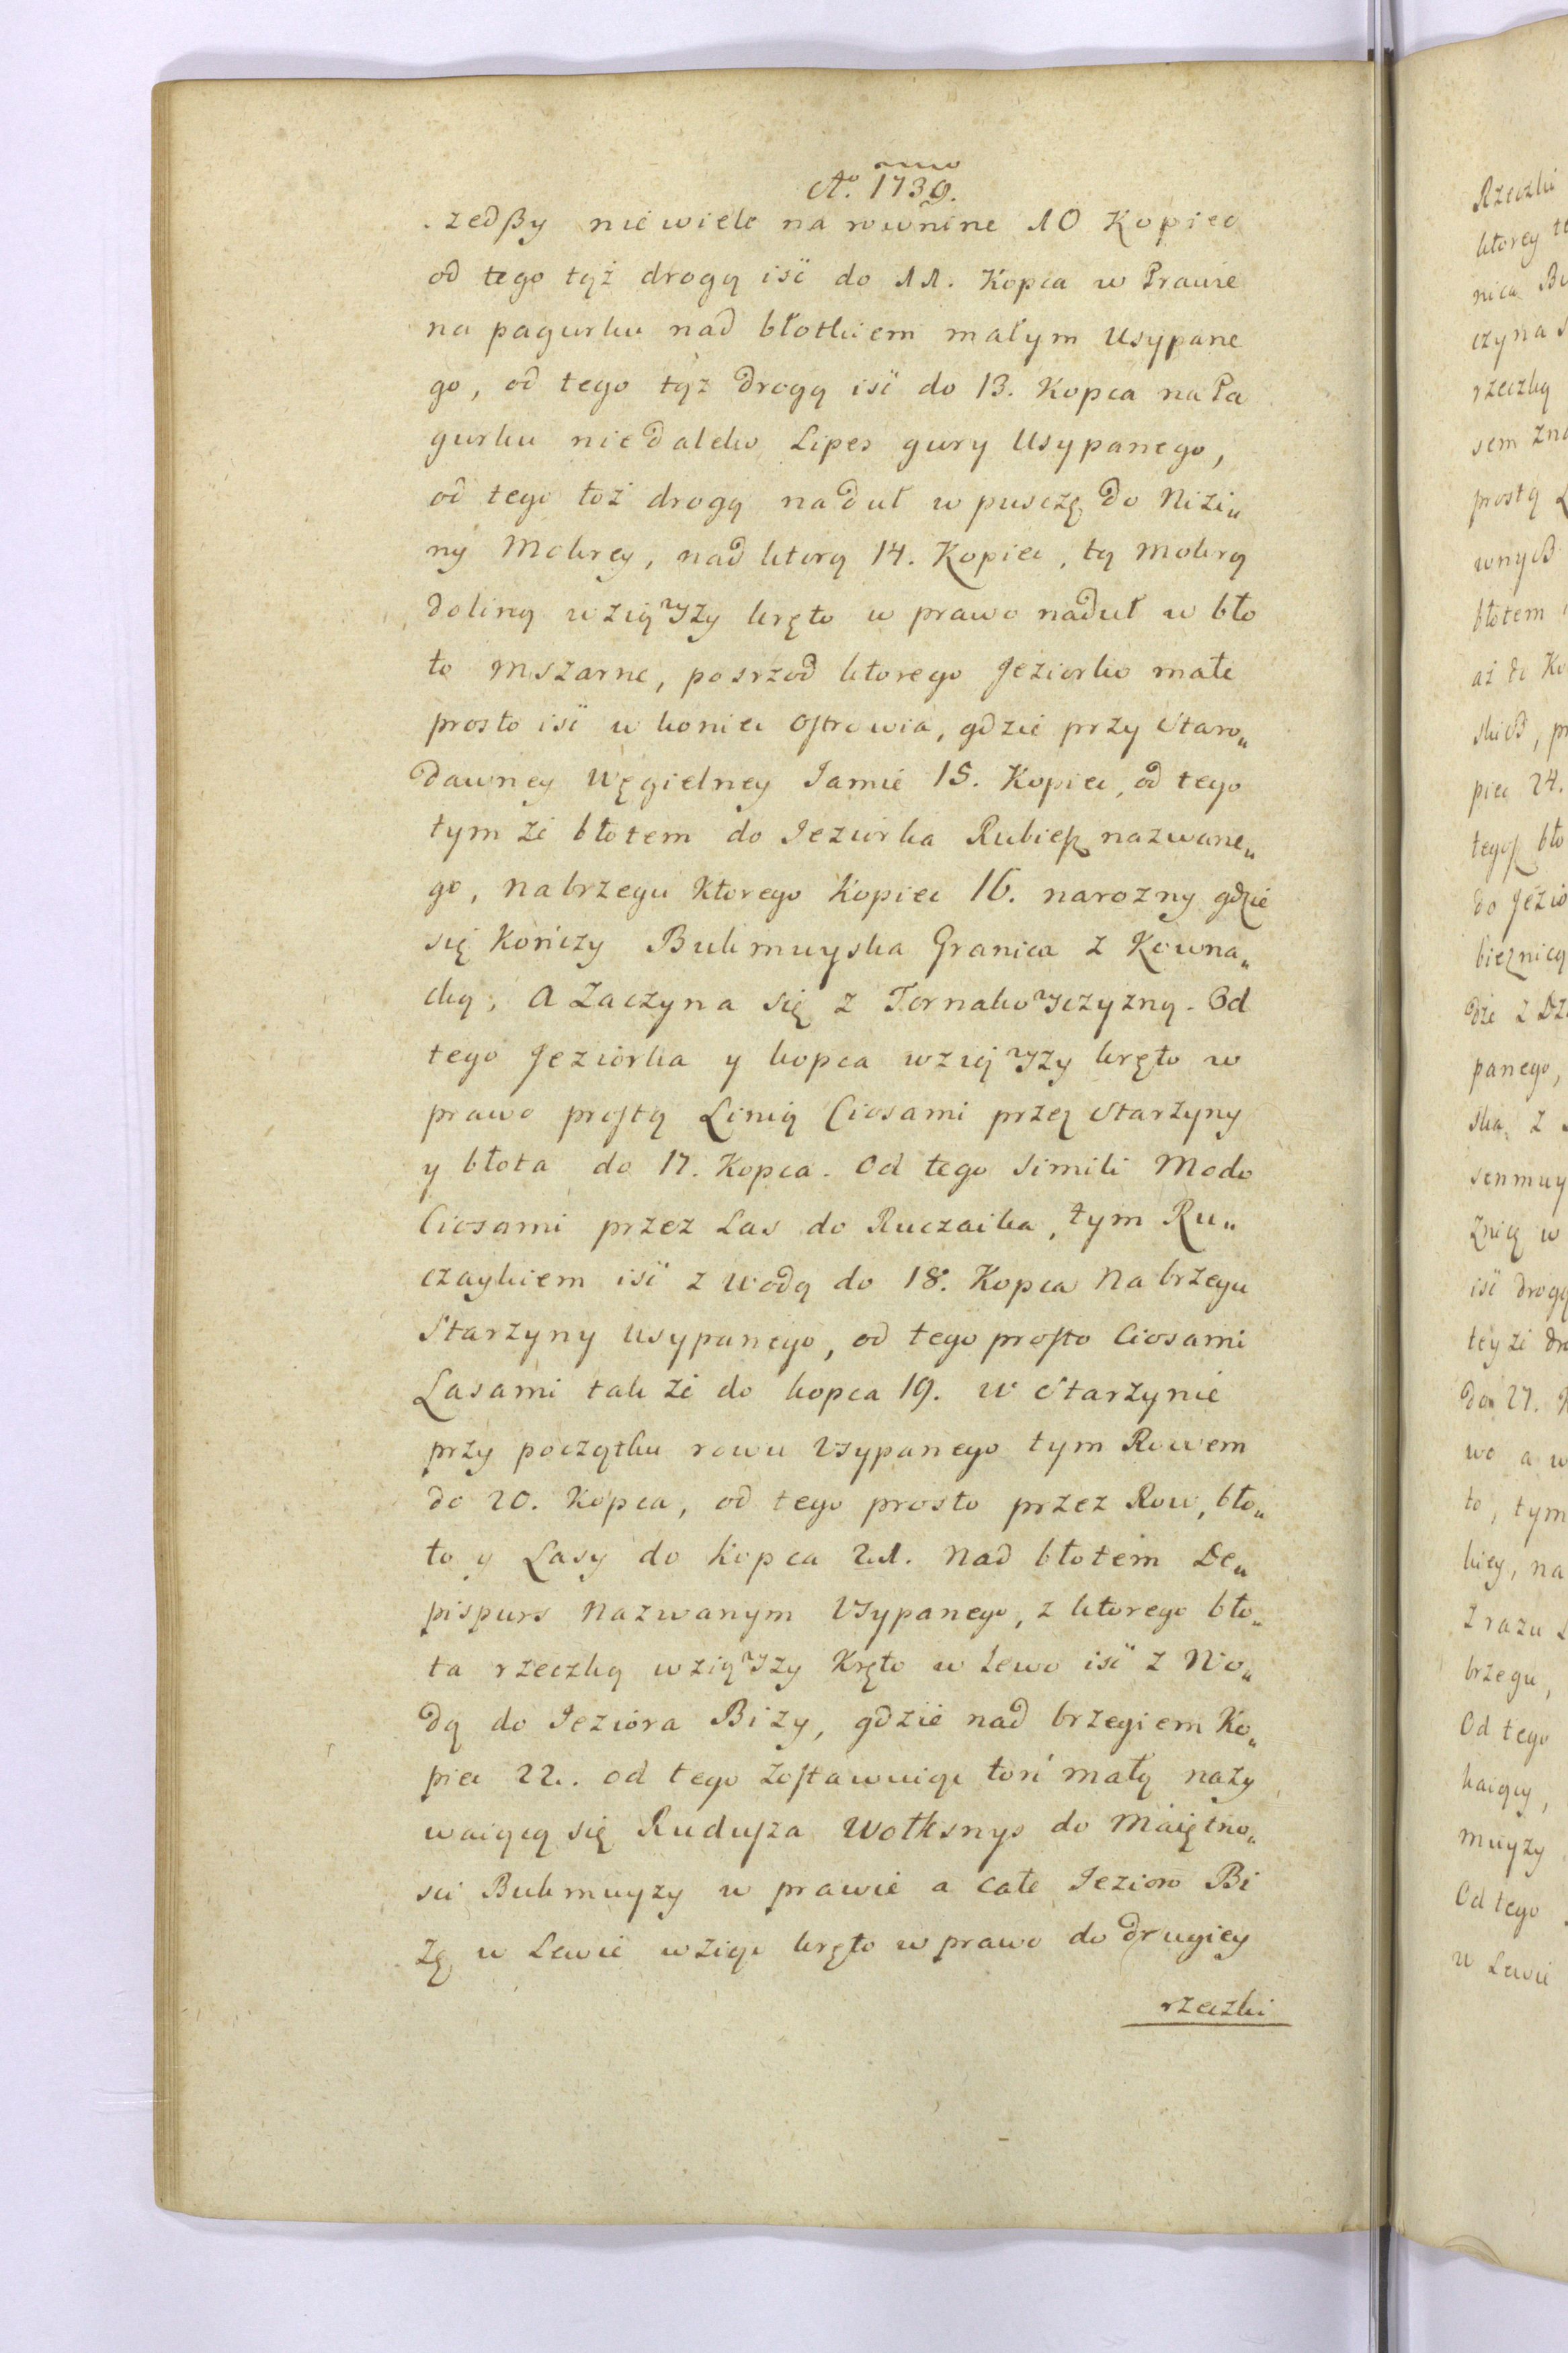 Aᵒ. 1739.
zedßy niewiele na rownine 10 Kopiec
od tego tąż drogą iść do 11. Kopca w Prawie
na pagurku nad błotkiem małym Usypane
go, od tego tąż drogą iść do 13. Kopca na Pa
gurku niedaleko Lipes gury Usypanego,
od tego toż drogą naduł w pusczę do Nizi„
ny Mokrey, nad ktorą 14. Kopiec, tą mokrą
doliną wziąwszy kręto w prawo naduł w bło
to mszarne, posrzod ktorego Jeziorko małe
prosto iść w koniec Ostrowia, gdzie przy Staro„
dawney Węgielney Jamie 15. Kopiec, od tego
tym że błotem do Jeziorka Rubież nazwane„
go, na brzegu Ktorego Kopiec 16. narozny gdzie
się Kończy Bukmuyska Granica z Kowna„
cką, a Zaczyna się z Tornakowsczyzną. Od
tego Jeziórka y kopca wziąwszy kręto w
prawo prostą Linią Ciosami przez Starzyny
y błota do 17. Kopca. Od tego Simili Modo
Ciosami przez Las do Ruczaika, tym Ru„
czaykiem iść z wodą do 18. Kopca Na brzegu
Starzyny Usypanego, od tego prosto Ciosami
Lasami tak że do kopca 19. w Starzynie
przy początku rowu Usypanego tym Rowem
do 20. Kopca, od tego prosto przez Row, bło„
to y Lasy do Kopca 21. Nad błotem De„
pispurs Nazwanym Usypanego, z ktorego bło„
ta rzeczką wziąwszy Kręto w Lewo iść z Wo„
dą do Jezióra Bizy, gdzie nad brzegiem Ko„
piec 22. od tego zostawuiąc toń małą nazy
waiącą się Rudusza Wolksnys do Maiętno„
sci Bukmuyzy w prawie a całe Jezioro Bi
zę w Lewie wziąc kręto w prawo do drugiey
rzeczki
Rzeczki
ktorey
nica
czyna
rzeczką
sem
prostą
wnych
błotem
aż do
skich,
piec 24.
tegoż
do
bieznicą
dzie z
panego,
ska, z
senmuy
znią w
iść
teyże
do 27.
wo a w
to, tym
kiey, na
z razu
brzegu,
Od tego
kaiącey,
muyzy
Od tego
w Lewie